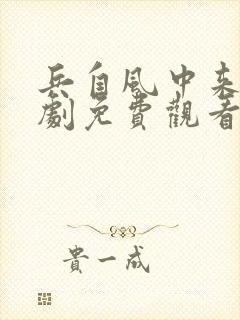 兵自風中來
劇免費觀看
貴一成